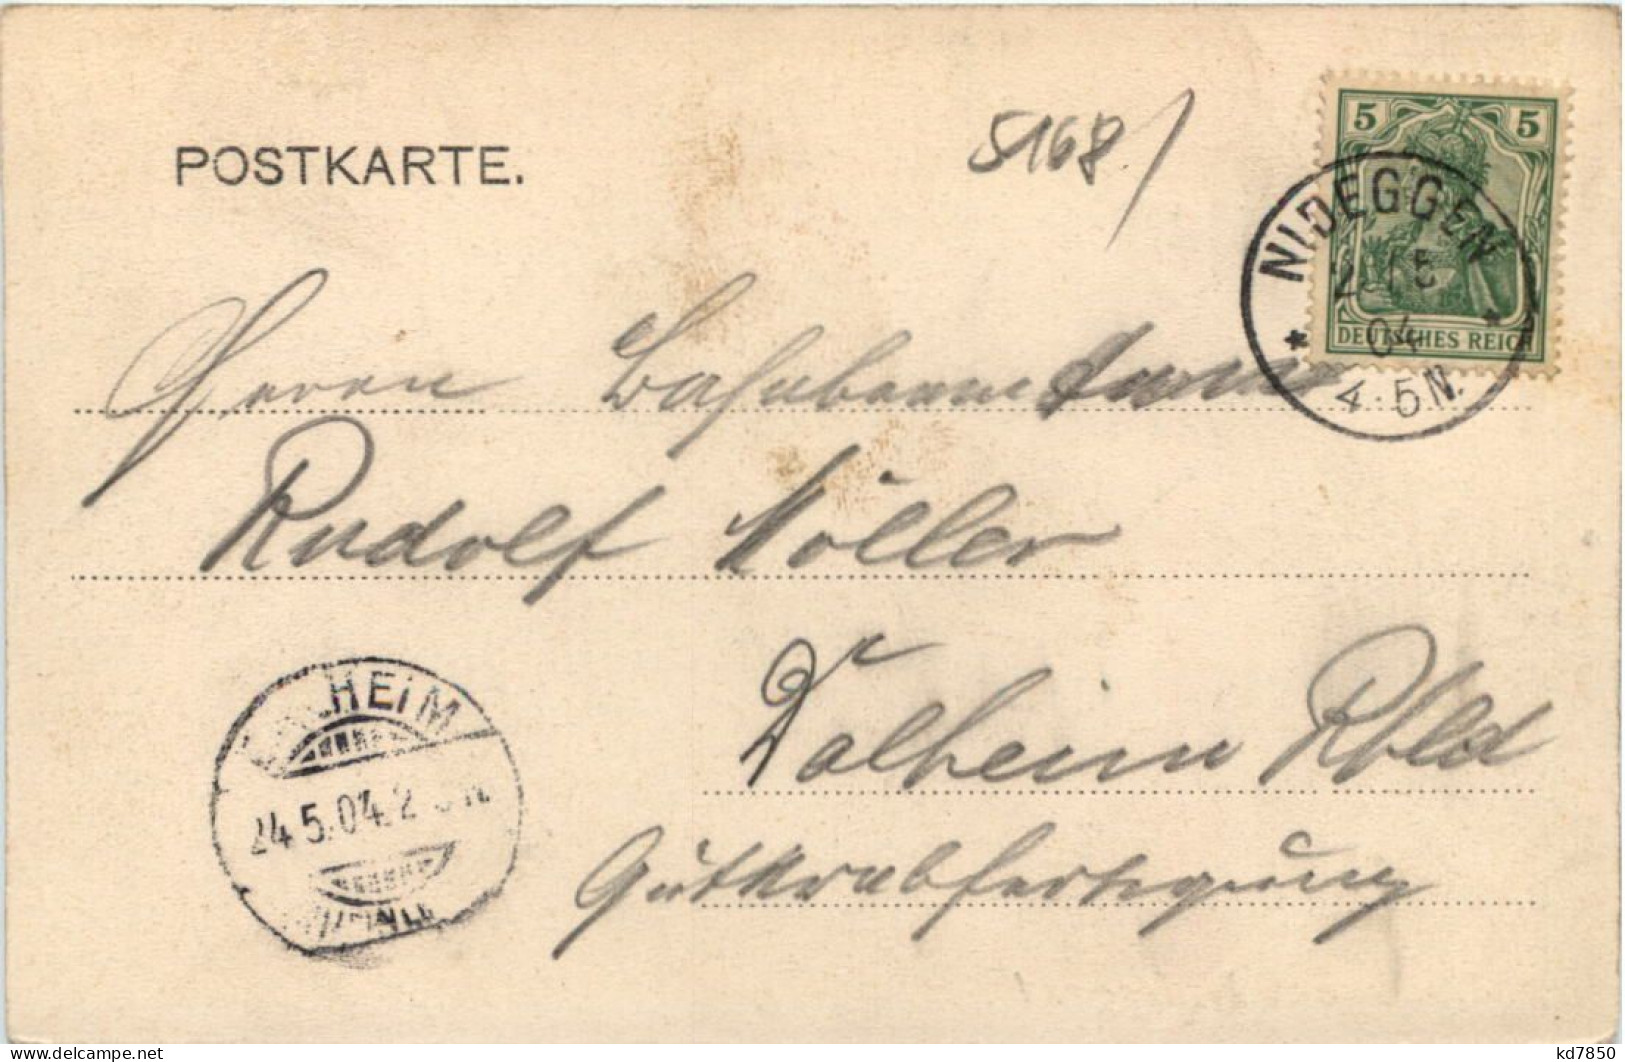 POSTKARTE.
5168
5 5
NIDEGGEN
5
04
4-5N.
DEUTSCHES REICH
Herrn
Rudolf Möller
Dalheim Rhld
Güterabfertigung
HEIM
24.5.04.2
delcampe.net
kd7850